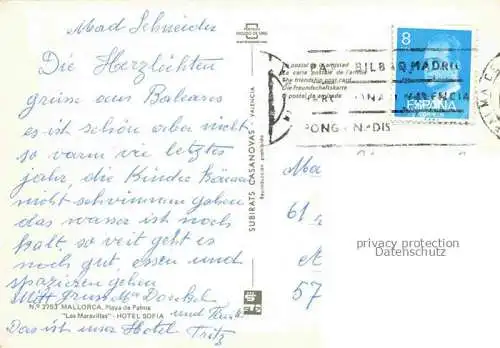 Mad Schneider
Die Herzlichten
grüsse aus Baleares
es ist schön aber nicht
so varm vie letztes
jahr, die Kinder können
nicht schvimmen gehen
das wasser ist noch
kalt, so veit geht es
noch gut, essen und
spazieren gehen
Mitt gruss Mr
und
Das ist unser Hotel Fritz
Nº 2753 MALLORCA, Playa de Palma
"Las Maravillas" - HOTEL SOFIA
SUBIRATS CASANOVAS - VALENCIA
Reproducción prohibida
La postal de amistad
La carte postale de l'amitié
The friendship post card
Die Freundschaftskarte
8
ESPAÑA
CORREOS
BILBAO MADRID
VALENCIA
PONGA
Ma
61
57
privacy protection
Datenschutz